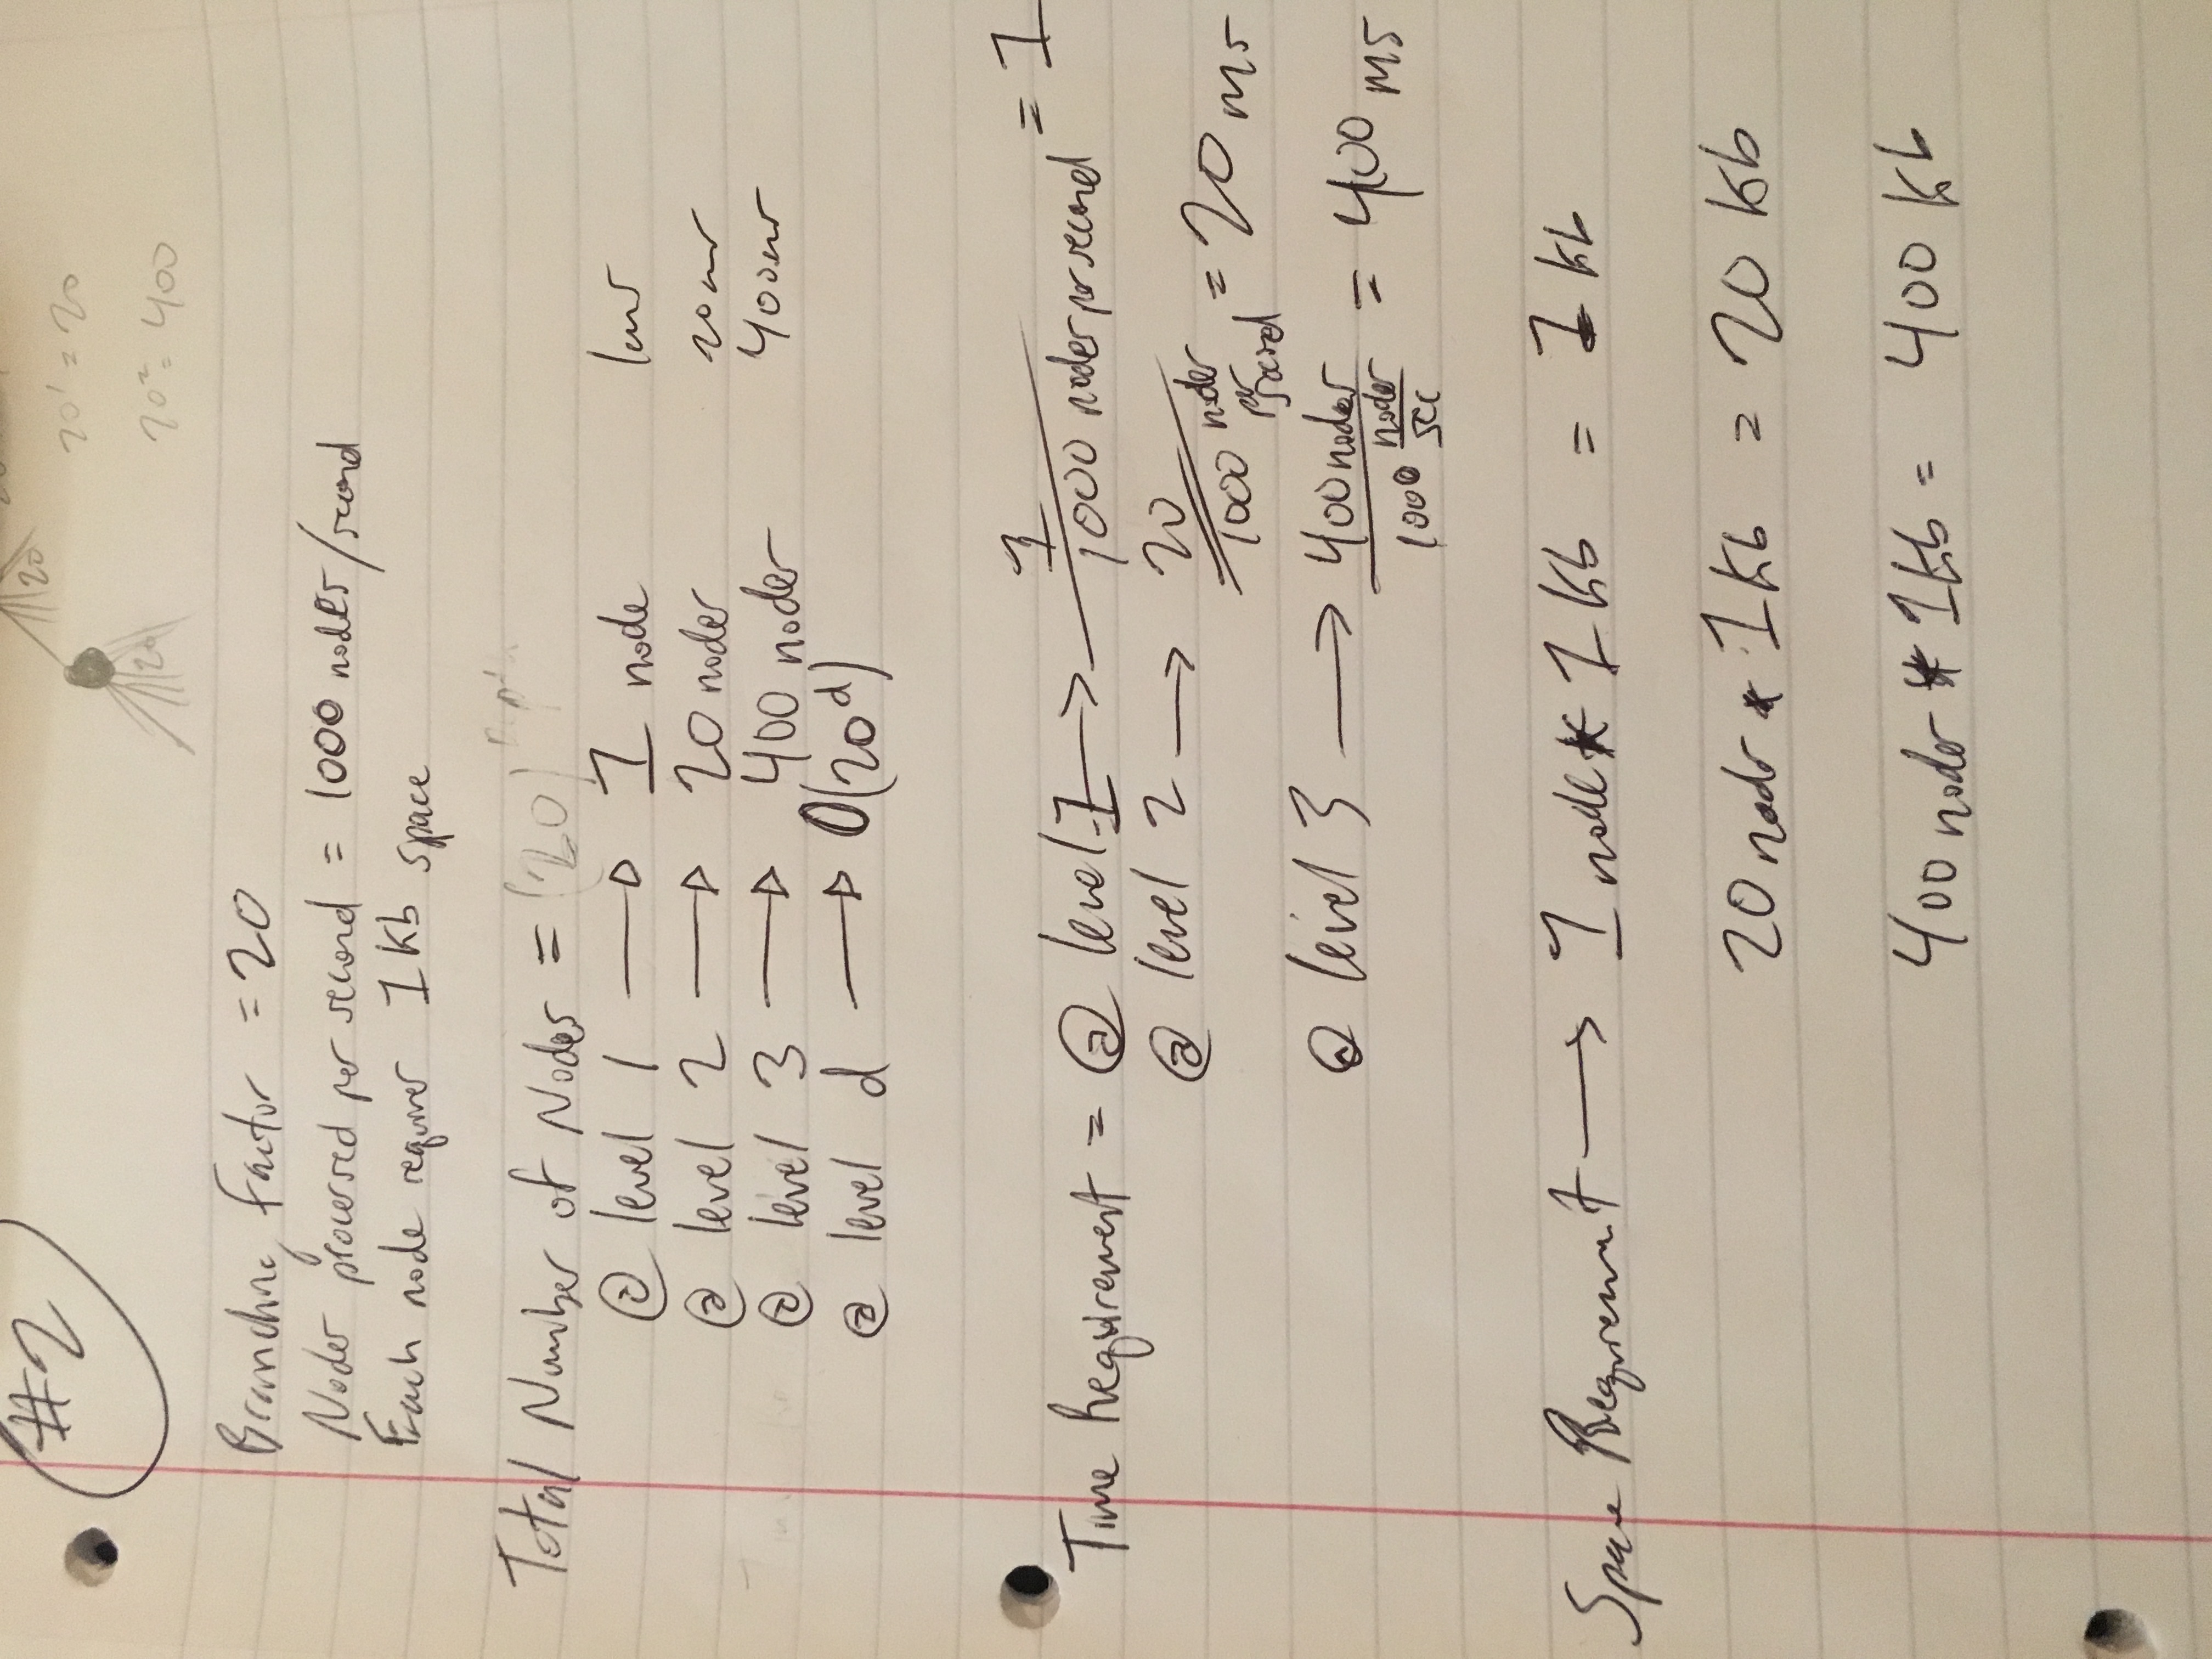 #2
20
20¹ = 20
20
20² = 400
Branching Factor = 20
Nodes processed per second = 1000 nodes/second
Each node requires 1 Kb space
Total Number of Nodes = (20)^Depth
@ level 1 → 1 node 1ms
@ level 2 → 20 nodes 20ms
@ level 3 → 400 nodes 400ms
@ level d → O(20^d)
Time Requirement = @ level 1 → 1 / 1000 nodes per second = 1
@ level 2 → 20 / 1000 nodes per second = 20 ms
@ level 3 → 400 nodes / 1000 nodes/sec = 400 ms
Space Requirement → 1 node * 1 Kb = 1 Kb
20 nodes * 1 Kb = 20 Kb
400 nodes * 1 Kb = 400 Kb